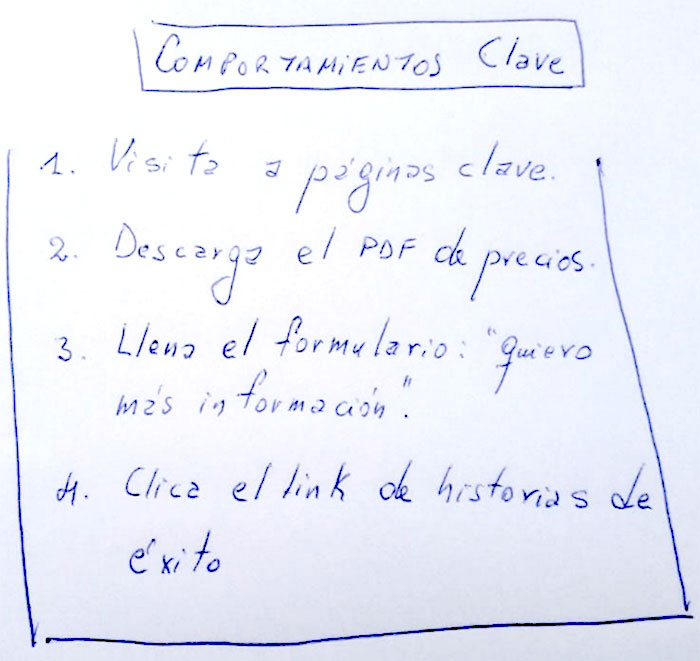 COMPORTAMIENTOS Clave
1. Visita a páginas clave.
2. Descarga el PDF de precios.
3. Llena el formulario: "quiero
más información".
4. Clica el link de historias de
éxito